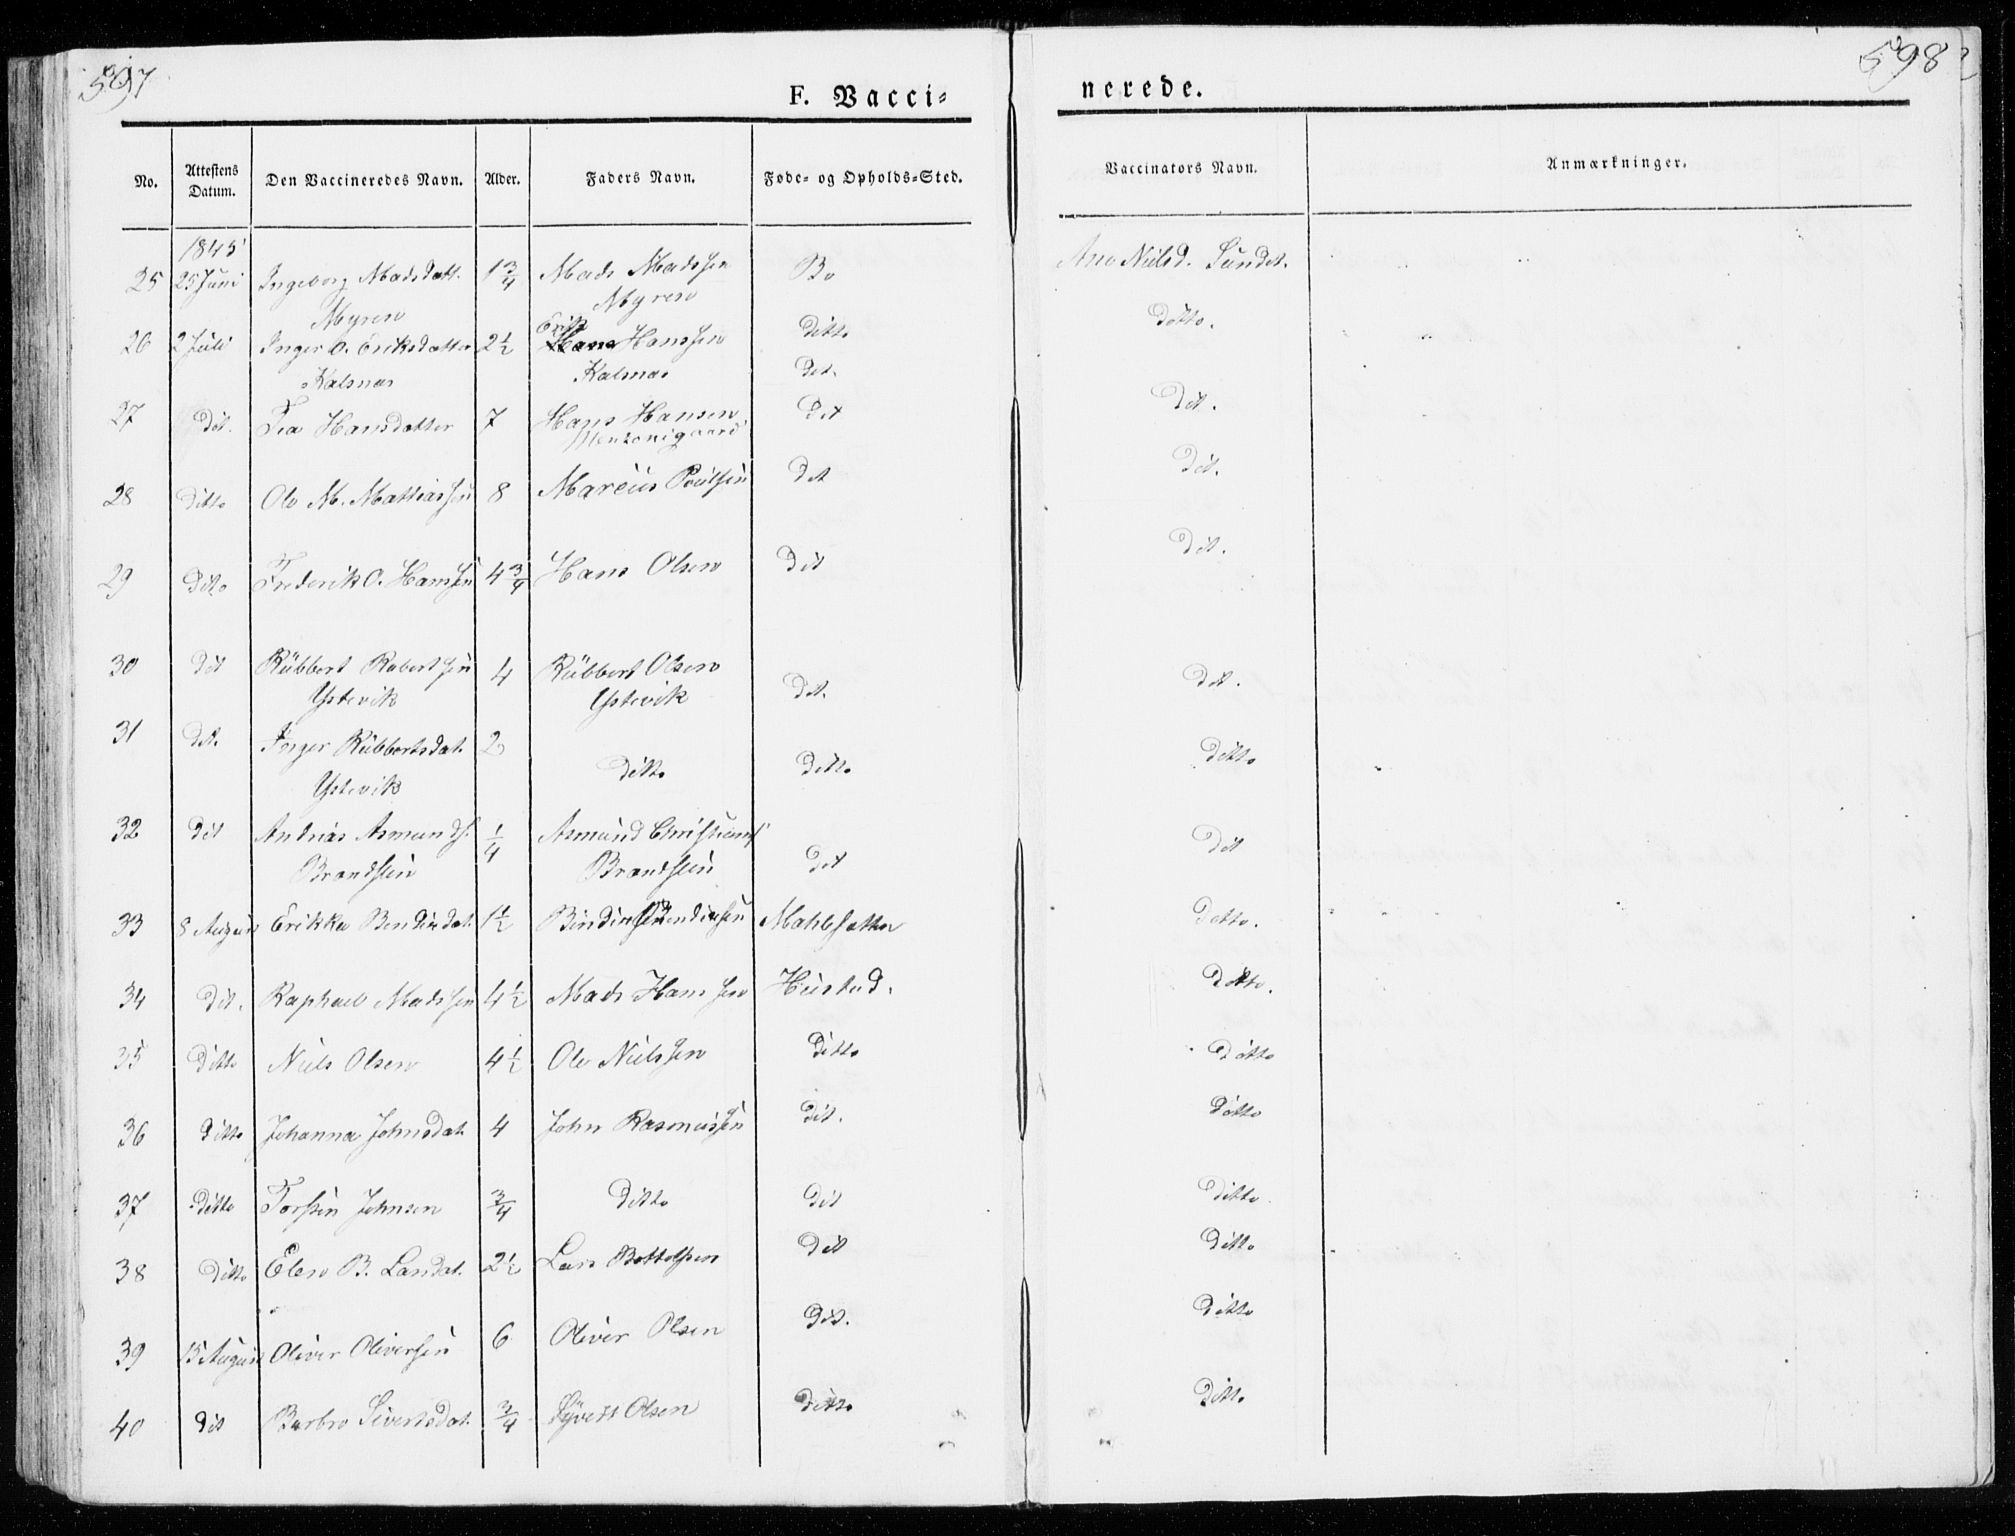 597
598
F. Vacci-
nerede.
No. Attestens Datum. Den Vaccineredes Navn. Alder. Faders Navn. Føde- og Opholds-Sted. Vaccinators Navn. Anmærkninger.
1845
25 25 Juni Ingeborg Madsdatt. 1 3/4 Mads Madssen Bo Ane Nielsd. Sundet.
Myren Myren
26 2 Juli Inger O. Eriksdatter 2 1/2 Erik Hanssen ditto ditto.
Kalsnas Kalsnas det.
27 dit. Tea Hansdatter 7 Hans Hansen det dit.
28 ditto Ole M. Mattiassen 8 Marcus Poulsen det dit.
29 ditto Frederik O. Hanssen 4 3/4 Hans Olsen dit dit.
30 dit Rübbert Robertsen 4 Rübbert Olsen dit. dit.
Ystevik Ystevik
31 dit. Inger Rübbertsdat. 2 ditto ditto ditto
Ystevik
32 dit Andrias Asmunds. 1/4 Asmund Christians. dit dit
Brandsten Brandsten
33 8 August Erikka Bendixdat. 1 1/2 Bendixsen ditto.
34 dit. Raphael Madssen 4 1/2 Mads Hanssen Hustad. ditto.
35 ditto Niels Olsen 4 1/2 Ole Nielssen ditto ditto
36 ditto Johanna Johnsdat. 4 John Rasmussen dit. ditto
37 ditto Torsten Johnsen 3/4 ditto dit ditto
38 ditto Elen B. Larsdat. 2 1/2 Lars Bottolfsen dit ditto
39 15 August Oliver Oliversen 6 Oliver Olsen dit. ditto
40 dit Barbro Sivertsdat. 3/4 Syvert Olsen ditto ditto